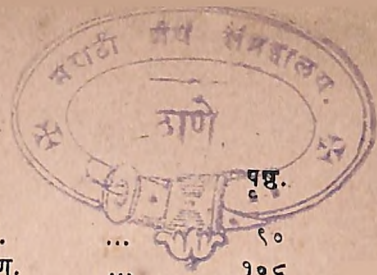 मराठी ग्रंथ संग्रहालय.
ठाणे
पृष्ठ.
... ९०
... १०६